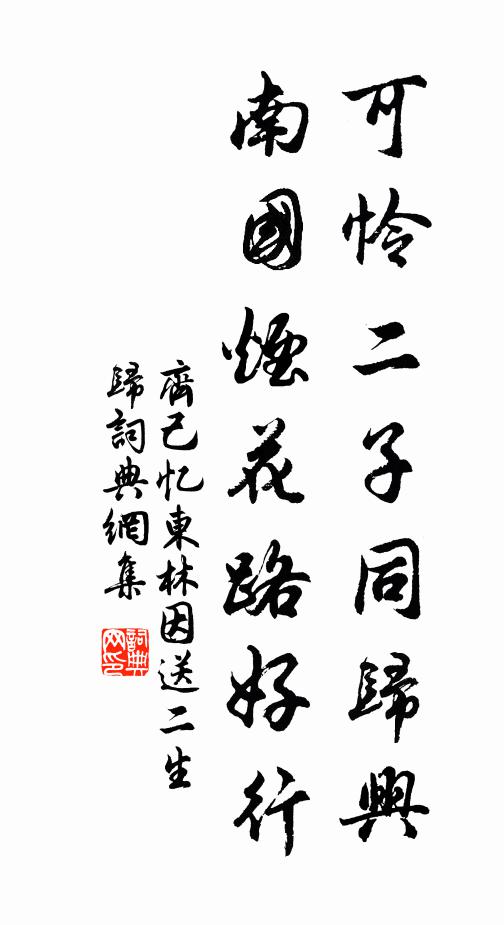 可怜二子同歸興
南國煙花路好行
齊己忆東林因送二生
歸詞典網集
詞典
网印